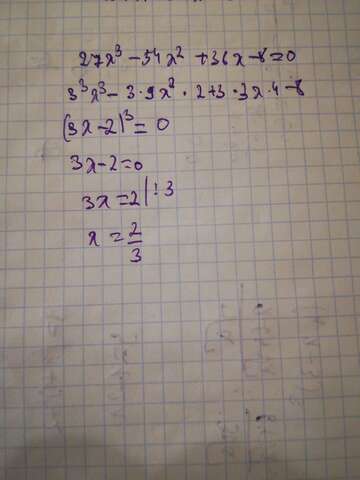 27x³ - 54x² + 36x - 8 = 0
3³x³ - 3 · 9x² · 2 + 3 · 3x · 4 - 8
(3x - 2)³ = 0
3x - 2 = 0
3x = 2 | : 3
x = 2/3